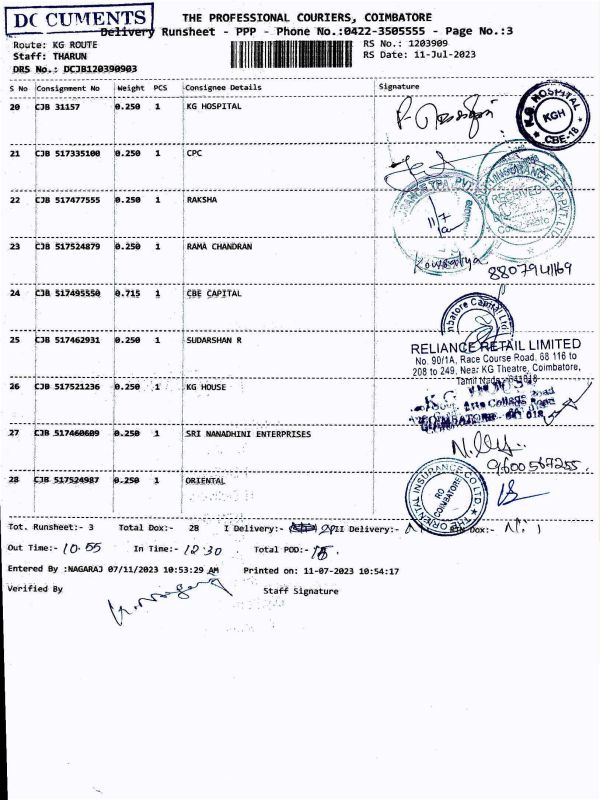 DOCUMENTS
THE PROFESSIONAL COURIERS, COIMBATORE
Delivery Runsheet - PPP - Phone No.:0422-3505555 - Page No.:3
Route: KG ROUTE
RS No.: 1203909
Staff: THARUN
RS Date: 11-Jul-2023
DRS No.: DCJB120390903
S No Consignment No Weight PCS Consignee Details Signature
20 CJB 31157 0.250 1 KG HOSPITAL
K.G. HOSPITAL
KGH
CBE-18
21 CJB 517335100 0.250 1 CPC
22 CJB 517477555 0.250 1 RAKSHA
RECEIVED
11/7
23 CJB 517524879 0.250 1 RAMA CHANDRAN
Kowsalya
8807941169
24 CJB 517495550 0.715 1 CBE CAPITAL
25 CJB 517462931 0.250 1 SUDARSHAN R
RELIANCE RETAIL LIMITED
No. 90/1A, Race Course Road, 68 116 to
208 to 249, Near KG Theatre, Coimbatore,
Tamil Nadu 641018
26 CJB 517521236 0.250 1 KG HOUSE
Arts College Road
COIMBATORE - 641 018
27 CJB 517460609 0.250 1 SRI NANADHINI ENTERPRISES
9600567255
28 CJB 517524987 0.250 1 ORIENTAL
THE ORIENTAL INSURANCE CO. LTD
RO
COIMBATORE
Tot. Runsheet:- 3 Total Dox:- 28 I Delivery:- II Delivery:- Dox:-
Out Time:- 10.55 In Time:- 12.30 Total POD:-
Entered By :NAGARAJ 07/11/2023 10:53:29 AM Printed on: 11-07-2023 10:54:17
Verified By Staff Signature